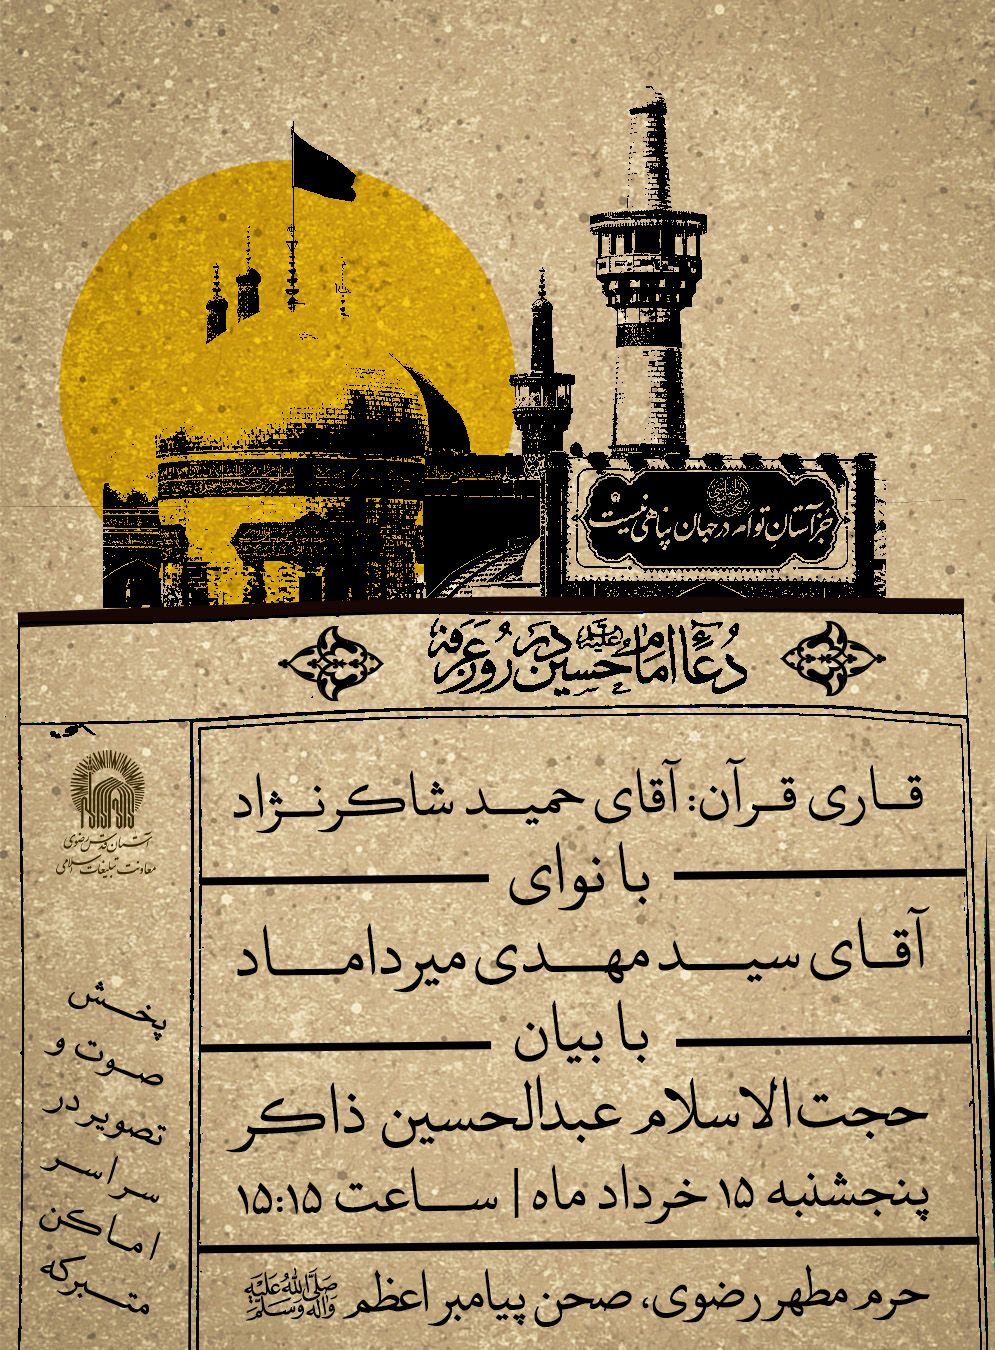 جز آستان توام در جهان پناهی نیست
دعای امام حسین علیه السلام در روز عرفه
قاری قرآن: آقای حمید شاکرنژاد
با نوای
آقای سید مهدی میرداماد
با بیان
حجت‌الاسلام عبدالحسین ذاکر
پنجشنبه ۱۵ خرداد ماه | ساعت ۱۵:۱۵
حرم مطهر رضوی، صحن پیامبر اعظم صلی الله علیه وآله وسلم
آستان قدس رضوی
معاونت تبلیغات اسلامی
پخش
صوت و
تصویر در
سراسر
اماکن
متبرکه